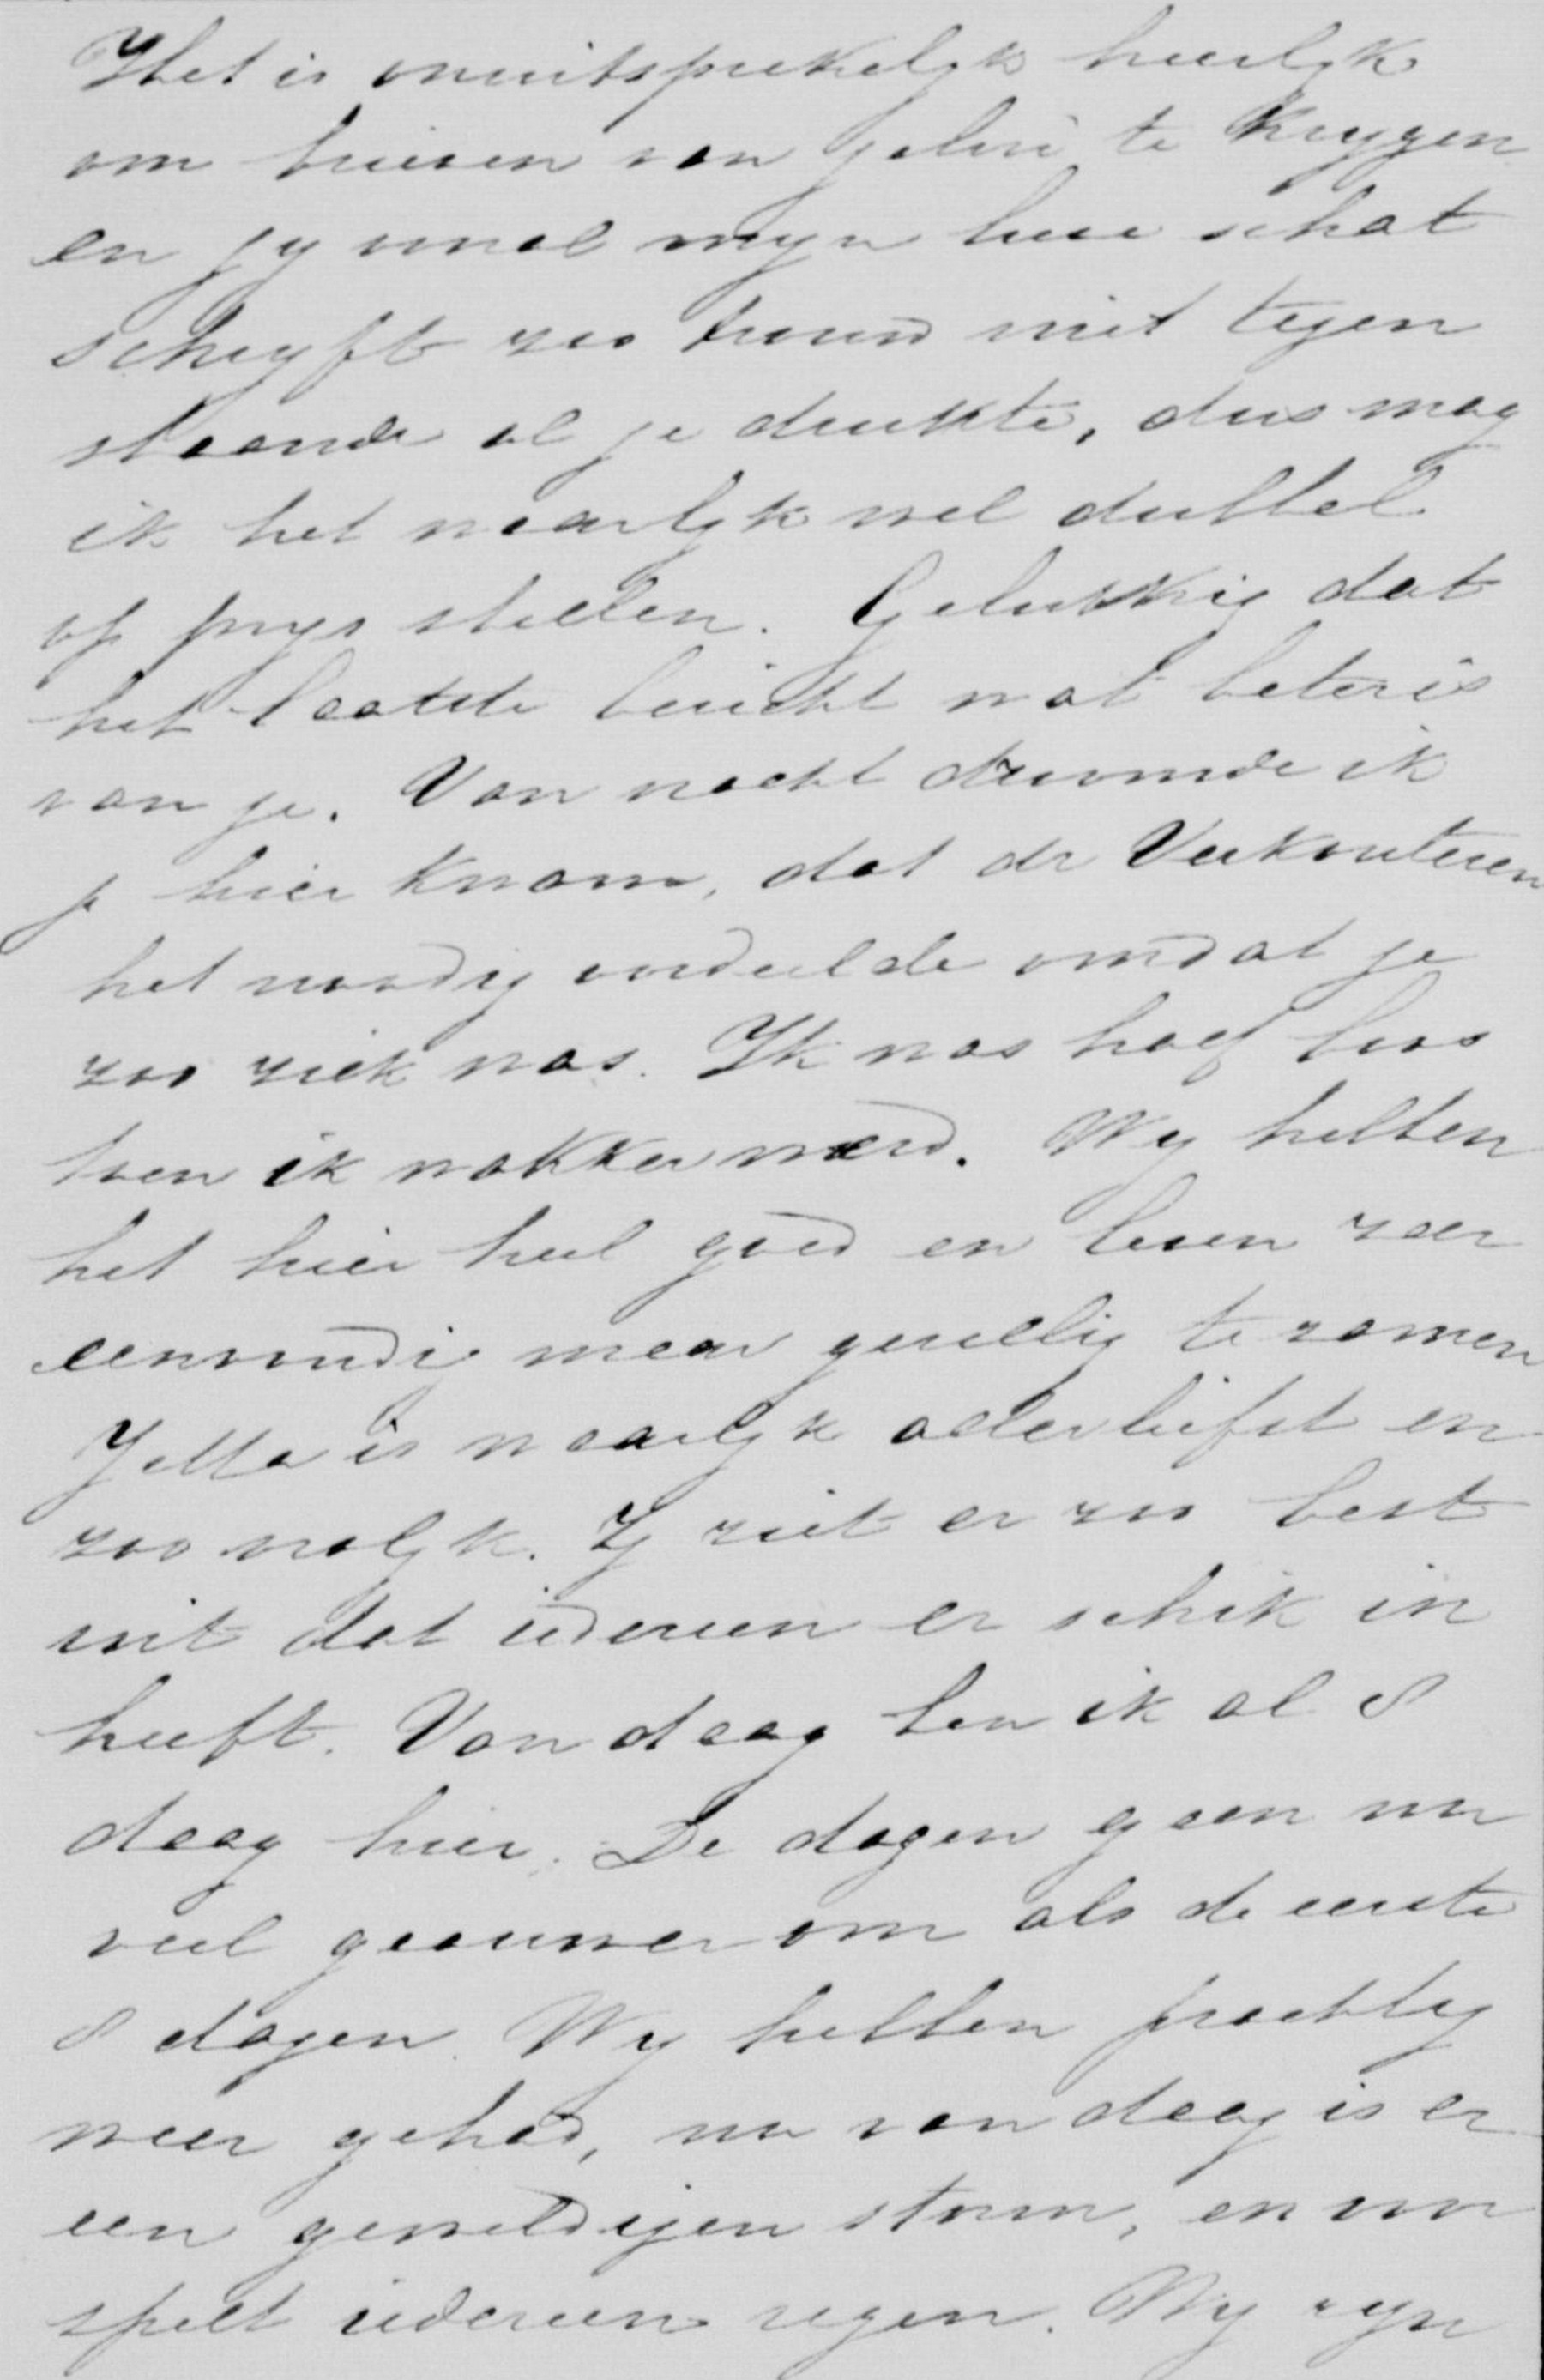 Het is onuitsprekelyk heerlyk
om brieven van jelui te krygen
en jy vooral myn lieve schat
schryft zoo trouw niet tegen
staande al je drukte, dus mag
ik het waarlyk wel dubbel
op prys stellen. Gelukkig dat
het laatste bericht wat beter is
van je. Van nacht droomde ik
je hier kwam, dat dr Verkouteren
het noodig oordeelde omdat je
zoo ziek was. Ik was half boos
toen ik wakker werd. Wy hebben
het hier heel goed en leven zeer
eenvoudig maar gezellig te zamen
Jetta is waarlyk allerliefst en
zoo vrolyk. Zy ziet er zoo best
uit dat iedereen er schik in
heeft. Van daag ben ik al 8
daag hier. De dagen gaan nu
veel gaauwer om als de eerste
8 dagen. Wy hebben prachtig
weer gehad, nu van daag is er
een geweldigen storm, en nu
spelt iedereen regen. Wy zyn